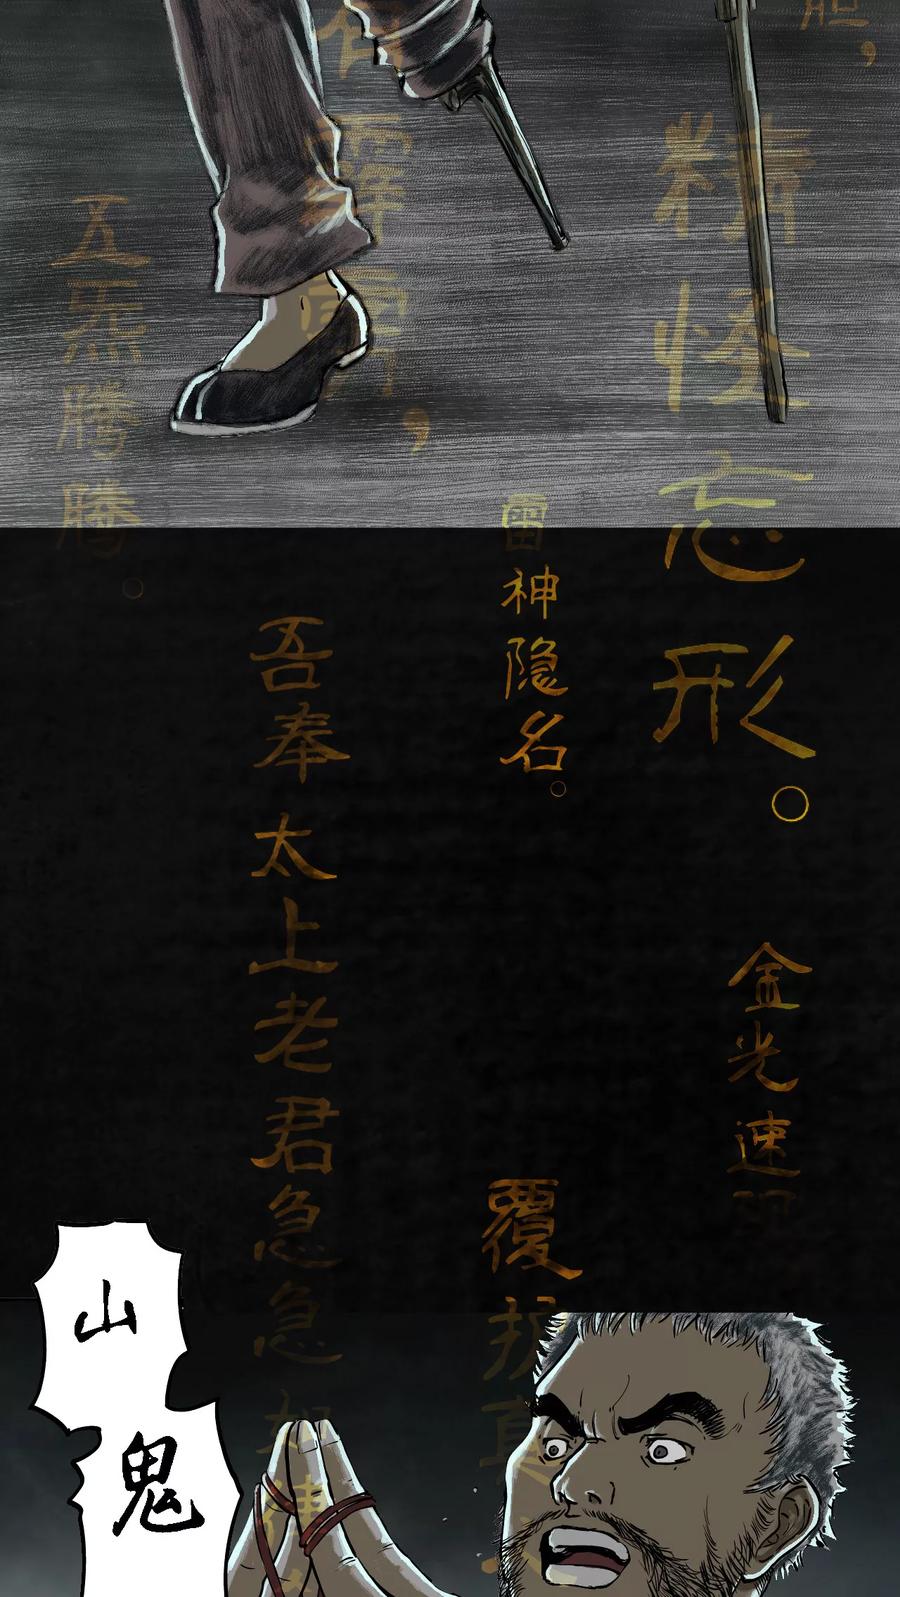 胆，
精怪忘形。
金光速
雷神隐名。
覆护真
霹雳，
吾奉太上老君急急如律
五炁腾腾。
山
鬼